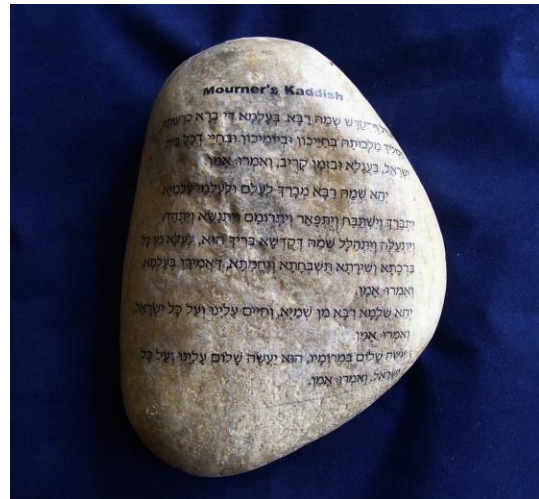 Mourner's Kaddish
שְׁמֵהּ רַבָּא. בְּעָלְמָא דִּי בְרָא
מַלְכוּתֵהּ בְּחַיֵּיכוֹן וּבְיוֹמֵיכוֹן וּבְחַיֵּי דְכָל בֵּית
יִשְׂרָאֵל, בַּעֲגָלָא וּבִזְמַן קָרִיב, וְאִמְרוּ אָמֵן
יְהֵא שְׁמֵהּ רַבָּא מְבָרַךְ לְעָלַם וּלְעָלְמֵי עָלְמַיָּא
יִתְבָּרַךְ וְיִשְׁתַּבַּח וְיִתְפָּאַר וְיִתְרוֹמַם וְיִתְנַשֵּׂא
וְיִתְעַלֶּה וְיִתְהַלָּל שְׁמֵהּ דְּקֻדְשָׁא בְּרִיךְ הוּא, לְעֵלָּא מִן כָּל
בִּרְכָתָא וְשִׁירָתָא תֻּשְׁבְּחָתָא וְנֶחֱמָתָא, דַּאֲמִירָן בְּעָלְמָא,
וְאִמְרוּ אָמֵן.
יְהֵא שְׁלָמָא רַבָּא מִן שְׁמַיָּא, וְחַיִּים עָלֵינוּ וְעַל כָּל יִשְׂרָאֵל,
וְאִמְרוּ אָמֵן.
עֹשֶׂה שָׁלוֹם בִּמְרוֹמָיו, הוּא יַעֲשֶׂה שָׁלוֹם עָלֵינוּ וְעַל כָּל
יִשְׂרָאֵל, וְאִמְרוּ אָמֵן.